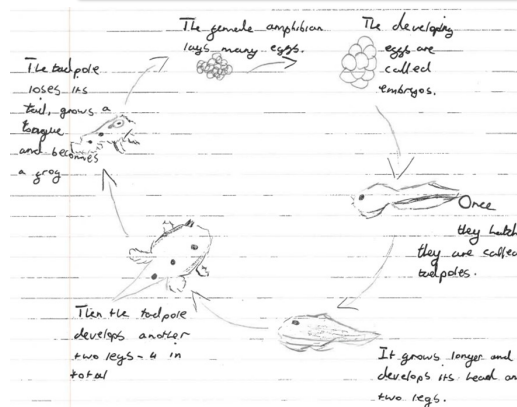 The female amphibian
lays many eggs.
The developing
eggs are
called
embryos.
Once
they hatch
they are called
tadpoles.
It grows longer and
develops its head an
two legs.
Then the tadpole
develops another
two legs - 4 in
total
The tadpole
loses its
tail, grows a
tongue
and becomes
a frog